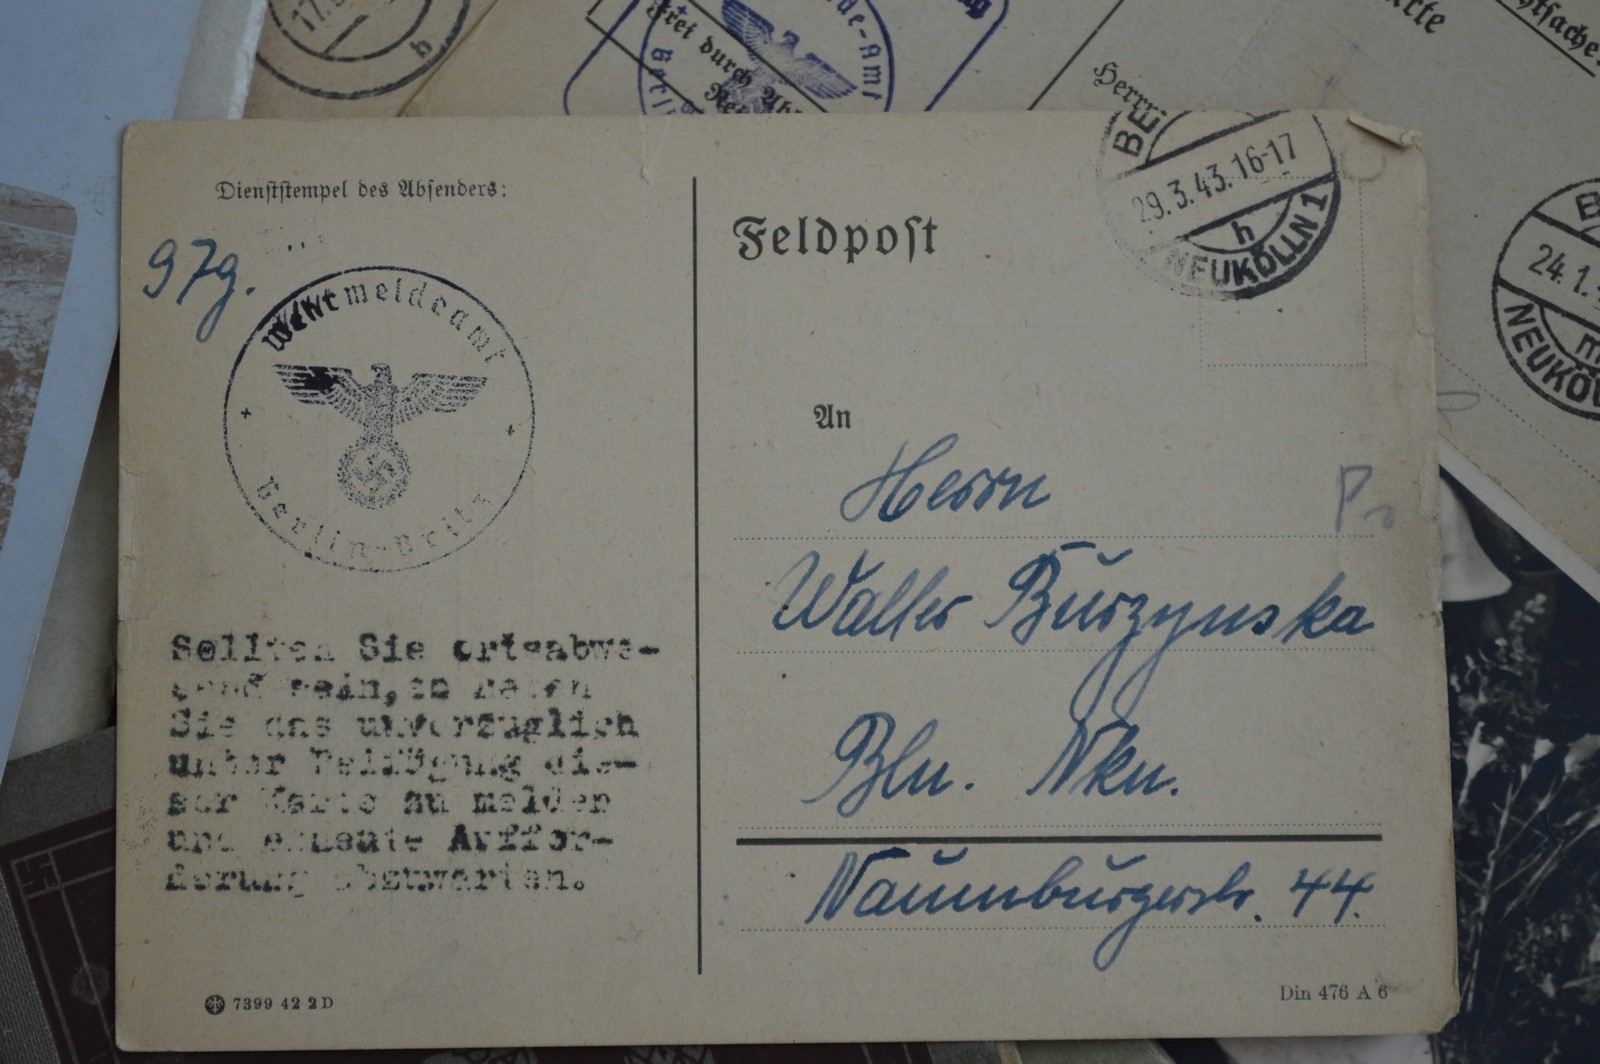 17.
b
Frei durch Ab
Rei
de-Amt
Berli
rte
htsache
Herrn
BE
29.3.43.16-17
h
NEUKÖLLN 1
B
24.1.
m
NEUKÖL
Dienststempel des Absenders:
97g.
Wehrmeldeamt
Berlin-Britz
Sollten Sie ortsabwe-
send sein, so haben
Sie das unverzüglich
unter Beifügung die-
ser Karte zu melden
und erneute Auffor-
derung abzuwarten.
7399 42 2 D
Feldpost
An
Herrn
Walter Burzynska
Bln. Nkn.
Naumburgerstr. 44.
Din 476 A 6